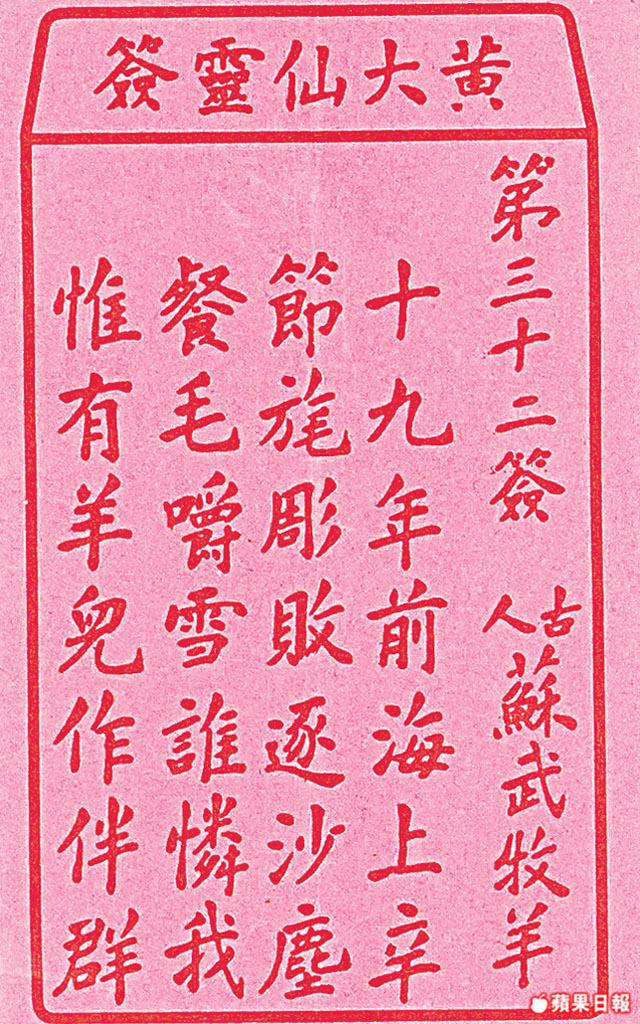 黄大仙靈簽
第三十二簽 古人 蘇武牧羊
十九年前海上辛
節旄彫敗逐沙塵
餐毛嚼雪誰憐我
惟有羊兒作伴群
蘋果日報